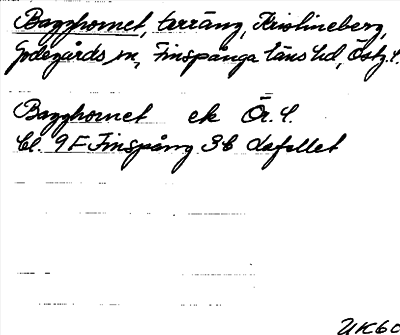 Bagghornet, terräng, Kristineberg,
Godegårds sn, Finspånga läns hd, Östg.l.
Bagghornet ek Ör. l.
bl. 9F Finspång 3b dafellet
UK60